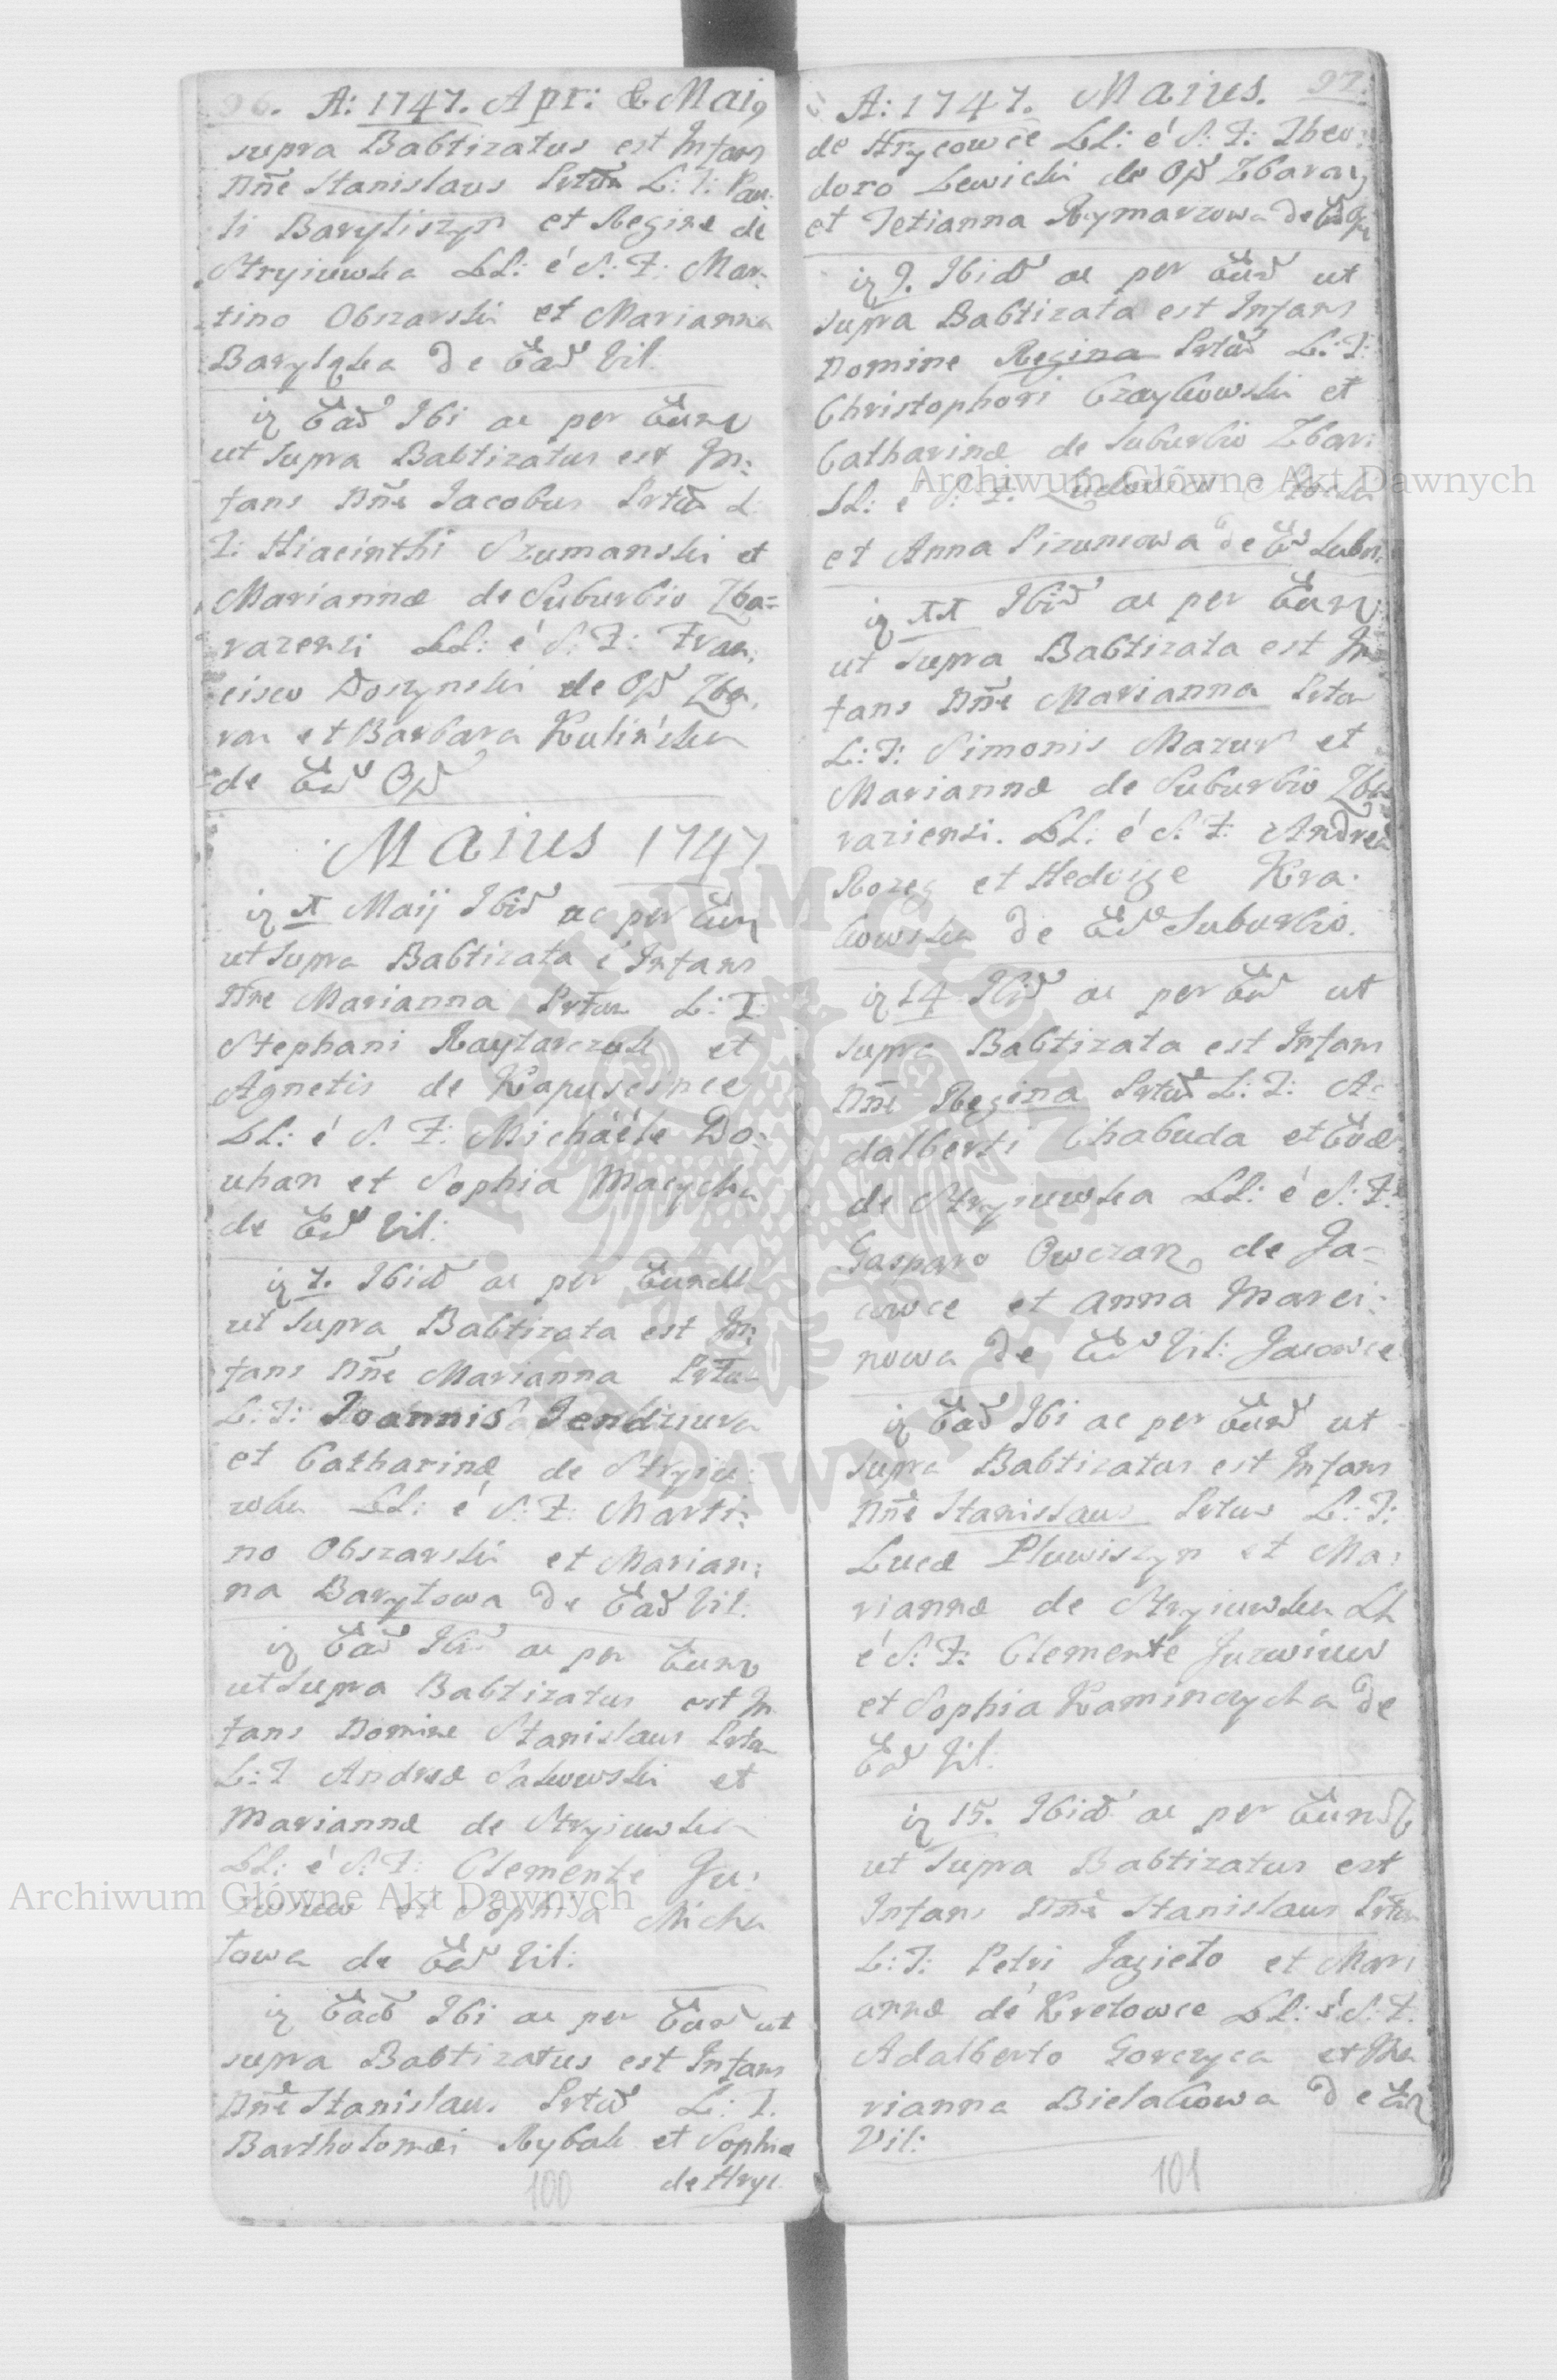 96. A: 1747. Apr: & Maig
supra Babtizatus est Infans
Dñe Stanislaus Prtũ L: T: Pau:
li Baryliszyn et Reginæ de
Stryiuwka LL: é S: F: Mar:
tino Obszarski et Marianna
de Ead Vil.
Ead Ibi ac per Eund
ut supra Babtizatus est In:
fans Dñe Jacobus Prtũ L:
T: Hiacinthi Szumanski et
Mariannæ de Suburbio Zba=
razensi LL: é S: F: Fran:
cisco Doszynski de Opd Zba.
raz et Barbara Kulińska
de Ed Opd
Maius 1747
Maij Ibid ac per Eun
ut supra Babtizata é Infans
Dne Marianna Prtũ L: T:
Stephani Raytarczuk et
Agnetis de Kapuscince
LL: é S: F: Michäéle Do:
uhan et Sophia Macycha
de Ed Vil:
7. Ibid ac per Eund
ut supra Babtizata est In:
fans Dñe Marianna Prtũ
L: T: Joannis Jendziura
et Catharinæ de Stryiu:
wka LL: é S: F: Marti:
no Obszarski et Marian:
na Barylowa de Ead Vil:
Ead Ibi ac per Eund
ut supra Babtizatus est In
fans Domine Stanislaus Prtũ
L: T Andreæ Sakowski et
Mariannæ de Stryiuwka
LL: é S: F: Clemente Ju:
et Sophia Micha
lowa de Ed Vil:
Ead Ibi ac per Eund ut
supra Babtizatus est Infans
Dñe Stanislaus Prtũ L: T.
Bartholomæi Rybak et Sophiæ
de Hryc
100
A: 1747. Maius. 97.
de Hrycowce LL: é S: F: Theo:
doro Lewicki de Opd Zbaraz
et Tetianna Rymarzowa de
9. Ibid ac per Eund ut
supra Babtizata est Infans
Domine Regina Prtũ L: T:
Christophori Czaykowski et
Catharinæ de suburbio Zbar:
LL: é S: F:
et Anna Pizuniowa de Ed subur:
Ibid ac per Eund
ut supra Babtizata est In
fans Dñe Marianna Prtũ
L: T: Simonis Mazur et
Mariannæ de Suburbio Zba
raziensi. LL: é S: F: Andrea
et Hedvige Kra:
kowska de Ed Suburbio.
14 Ibid ac per Ed ut
supra Babtizata est Infans
Dñe Regina Prtũ L: T: A=
dalberti Chabuda et Evæ
de Stryiuwka LL: é S: F:
Gasparo Owczarz de Ja=
cowce et Anna Marci:
nowa de Ed Vil: Jacowce
Ead Ibi ac per Eund ut
supra Babtizatus est Infans
Dñe Stanislaus Prtus L: T:
Lucæ Pluwiszyn et Ma:
riannæ de Stryiuwka LL
é S: F: Clemente Juzwiuw
et Sophia Kaminczycha de
Ed Vil.
15. Ibid ac per Eund
ut supra Babtizatus est
Infans Dñe Stanislaus Prtũ
L: T: Petri Jagieło et Mari
annæ de Kretowce LL: é S: F:
Adalberto Gorczyca et Ma
rianna Bielakowa de Ed
Vil:
101